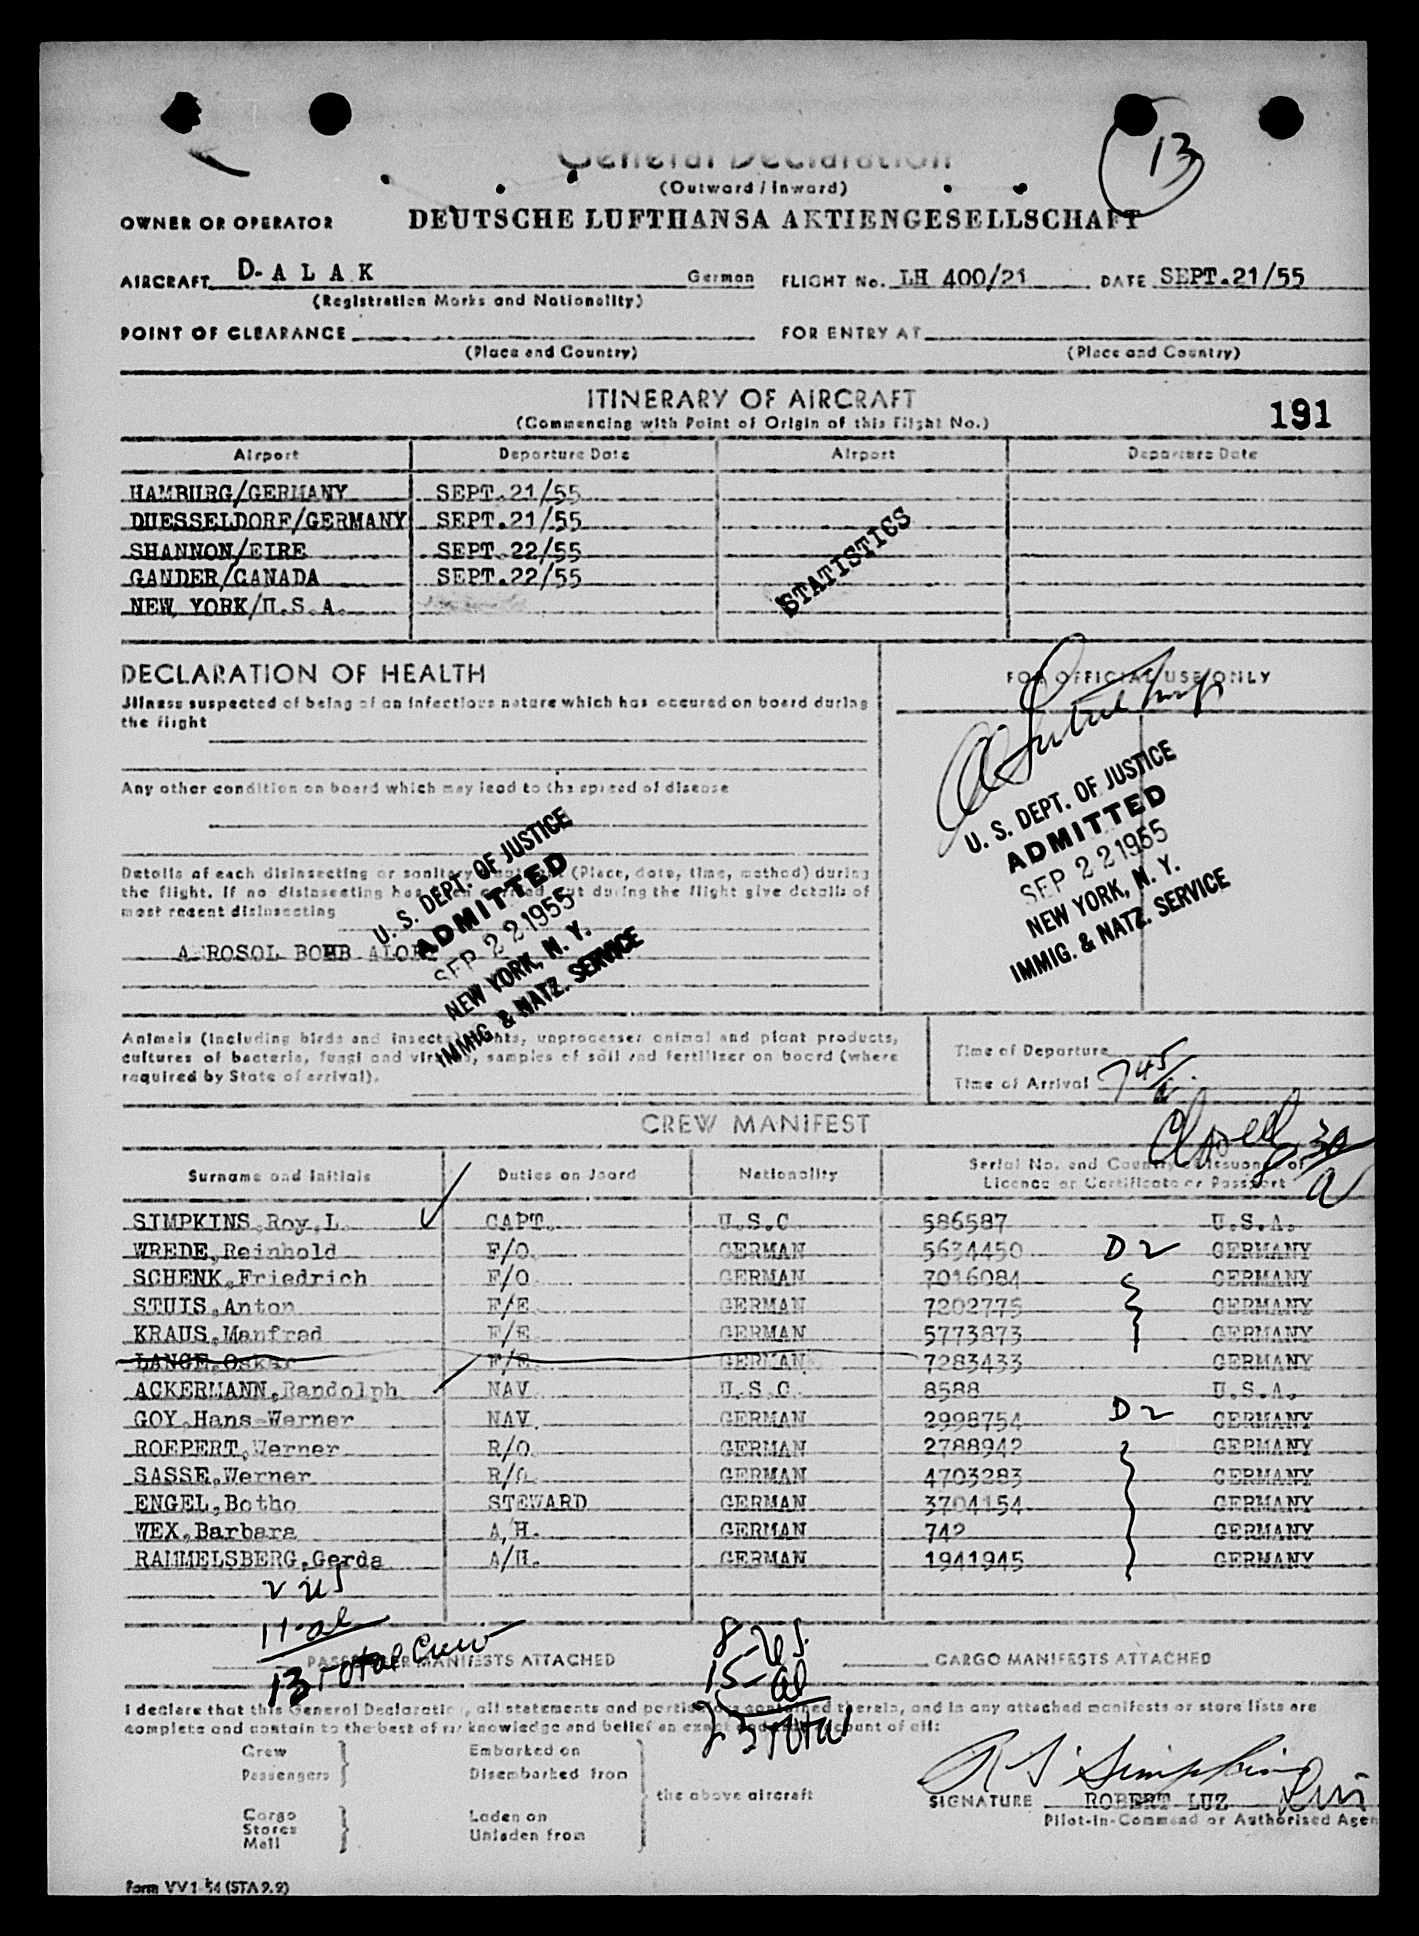 13
General Declaration
(Outward / Inward)
OWNER OR OPERATOR DEUTSCHE LUFTHANSA AKTIENGESELLSCHAFT
AIRCRAFT D-ALAK German FLIGHT No. LH 400/21 DATE SEPT.21/55
(Registration Marks and Nationality)
POINT OF CLEARANCE FOR ENTRY AT
(Place and Country) (Place and Country)
ITINERARY OF AIRCRAFT
(Commencing with Point of Origin of this Flight No.)
191
Airport Departure Date Airport Departure Date
HAMBURG/GERMANY SEPT.21/55
DUESSELDORF/GERMANY SEPT.21/55
SHANNON/EIRE SEPT.22/55
GANDER/CANADA SEPT.22/55
NEW YORK/U.S.A.
STATISTICS
DECLARATION OF HEALTH
Illness suspected of being of an infectious nature which has occured on board during
the flight
Any other condition on board which may lead to the spread of disease
Details of each disinsecting or sanitary (Place, date, time, method) during
the flight. If no disinsecting has been carried out during the flight give details of
most recent disinsecting
A ROSOL BOMB
U. S. DEPT. OF JUSTICE
ADMITTED
SEP 22 1955
NEW YORK, N. Y.
IMMIG. & NATZ. SERVICE
FOR OFFICIAL USE ONLY
U. S. DEPT. OF JUSTICE
ADMITTED
SEP 22 1955
NEW YORK, N. Y.
IMMIG. & NATZ. SERVICE
Animals (including birds and insects), unprocesser animal and plant products,
cultures of bacteria, fungi and viruses, samples of soil and fertilizer on board (where
required by State of arrival).
Time of Departure
Time of Arrival 7 45/a
CREW MANIFEST
Surname and Initials Duties on Board Nationality Serial No. and Country of Issuance of
Licence or Certificate or Passport
SIMPKINS,Roy,L. CAPT. U.S.C 586587 U.S.A.
WREDE,Reinhold F/O. GERMAN 5634450 D2 GERMANY
SCHENK,Friedrich F/O GERMAN 7016084 GERMANY
STUIS,Anton F/E GERMAN 7202775 GERMANY
KRAUS,Manfred F/E GERMAN 5773873 GERMANY
LANGE,Oskar F/E GERMAN 7283433 GERMANY
ACKERMANN,Randolph NAV U.S.C. 8588 U.S.A.
GOY,Hans-Werner NAV. GERMAN 2998754 D2 GERMANY
ROEPERT,Werner R/O GERMAN 2788942 GERMANY
SASSE,Werner R/O GERMAN 4703283 GERMANY
ENGEL,Botho STEWARD GERMAN 3704154 GERMANY
WEX,Barbara A/H. GERMAN 742 GERMANY
RAMMELSBERG,Gerda A/H. GERMAN 1941945 GERMANY
2 US
11-al
13 Total Crew
8-US.
15-al
23 Total
PASSENGER MANIFESTS ATTACHED CARGO MANIFESTS ATTACHED
I declare that this General Declaration, all statements and particulars contained therein, and in any attached manifests or store lists are
complete and contain to the best of my knowledge and belief an exact and account of all:
Crew
Passengers
Embarked on
Disembarked from
Cargo
Stores
Mail
Laden on
Unladen from
the above aircraft
R L Simpkins
SIGNATURE ROBERT LUZ
Pilot-in-Command or Authorised Agen
Form VV 1 54 (STA 9.9)